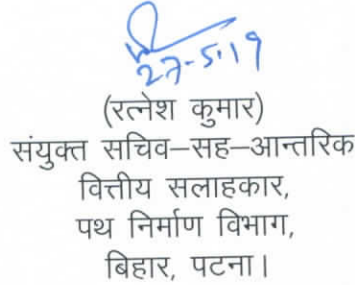 27-5-19
(रत्नेश कुमार)
संयुक्त सचिव–सह–आन्तरिक
वित्तीय सलाहकार,
पथ निर्माण विभाग,
बिहार, पटना।